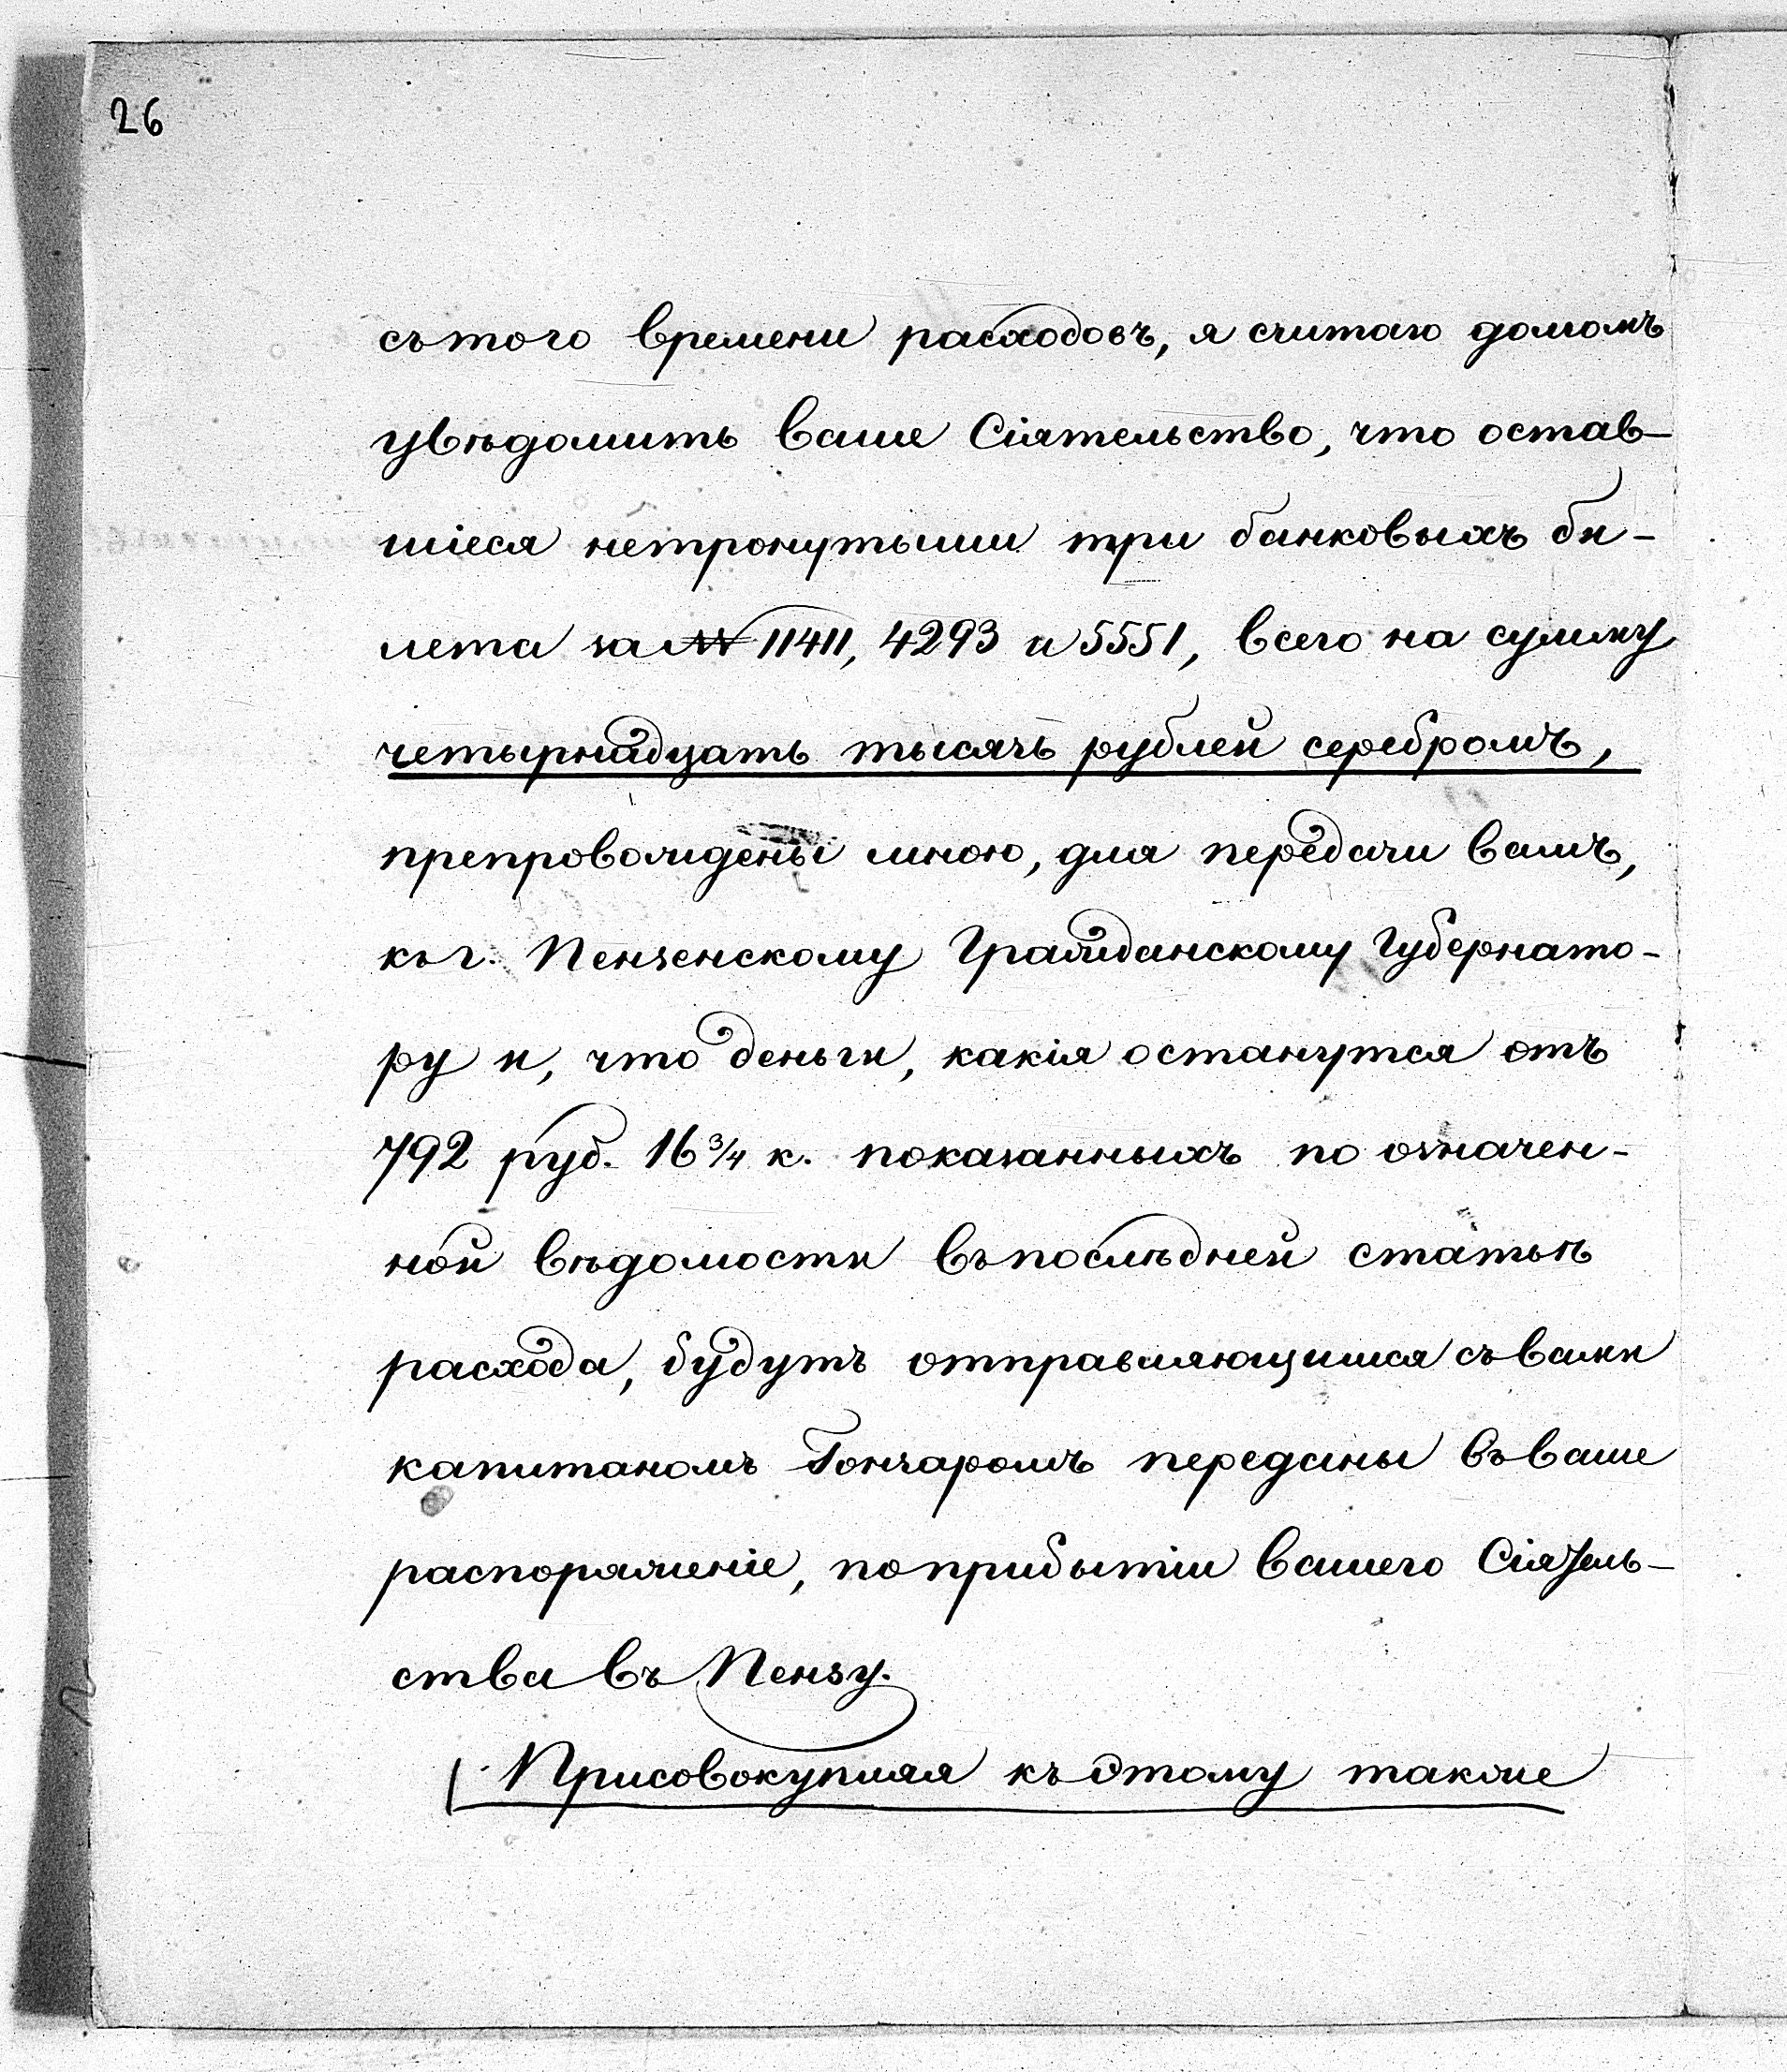 26
съ того времени расходовъ, я считаю долгомъ
увѣдомить Ваше Сіятельство, что остав-
шіеся нетронутыми три банковыхъ би-
лета за №№ 11411, 4293 и 5551, всего на сумму
четырнадцать тысячъ рублей серебромъ,
препровождены мною, для передачи Вамъ,
къ г. Пензенскому Гражданскому Губернато-
ру и, что деньги, какія останутся отъ
792 руб. 16 3/4 к. показанныхъ по означен-
ной вѣдомости въ послѣдней статьѣ
расхода, будутъ отправляющимся съ Вами
капитаномъ Гончаромъ переданы въ Ваше
распоряженіе, по прибытіи Вашего Сіятель-
ства въ Пензу.
Присовокупляя къ этому также